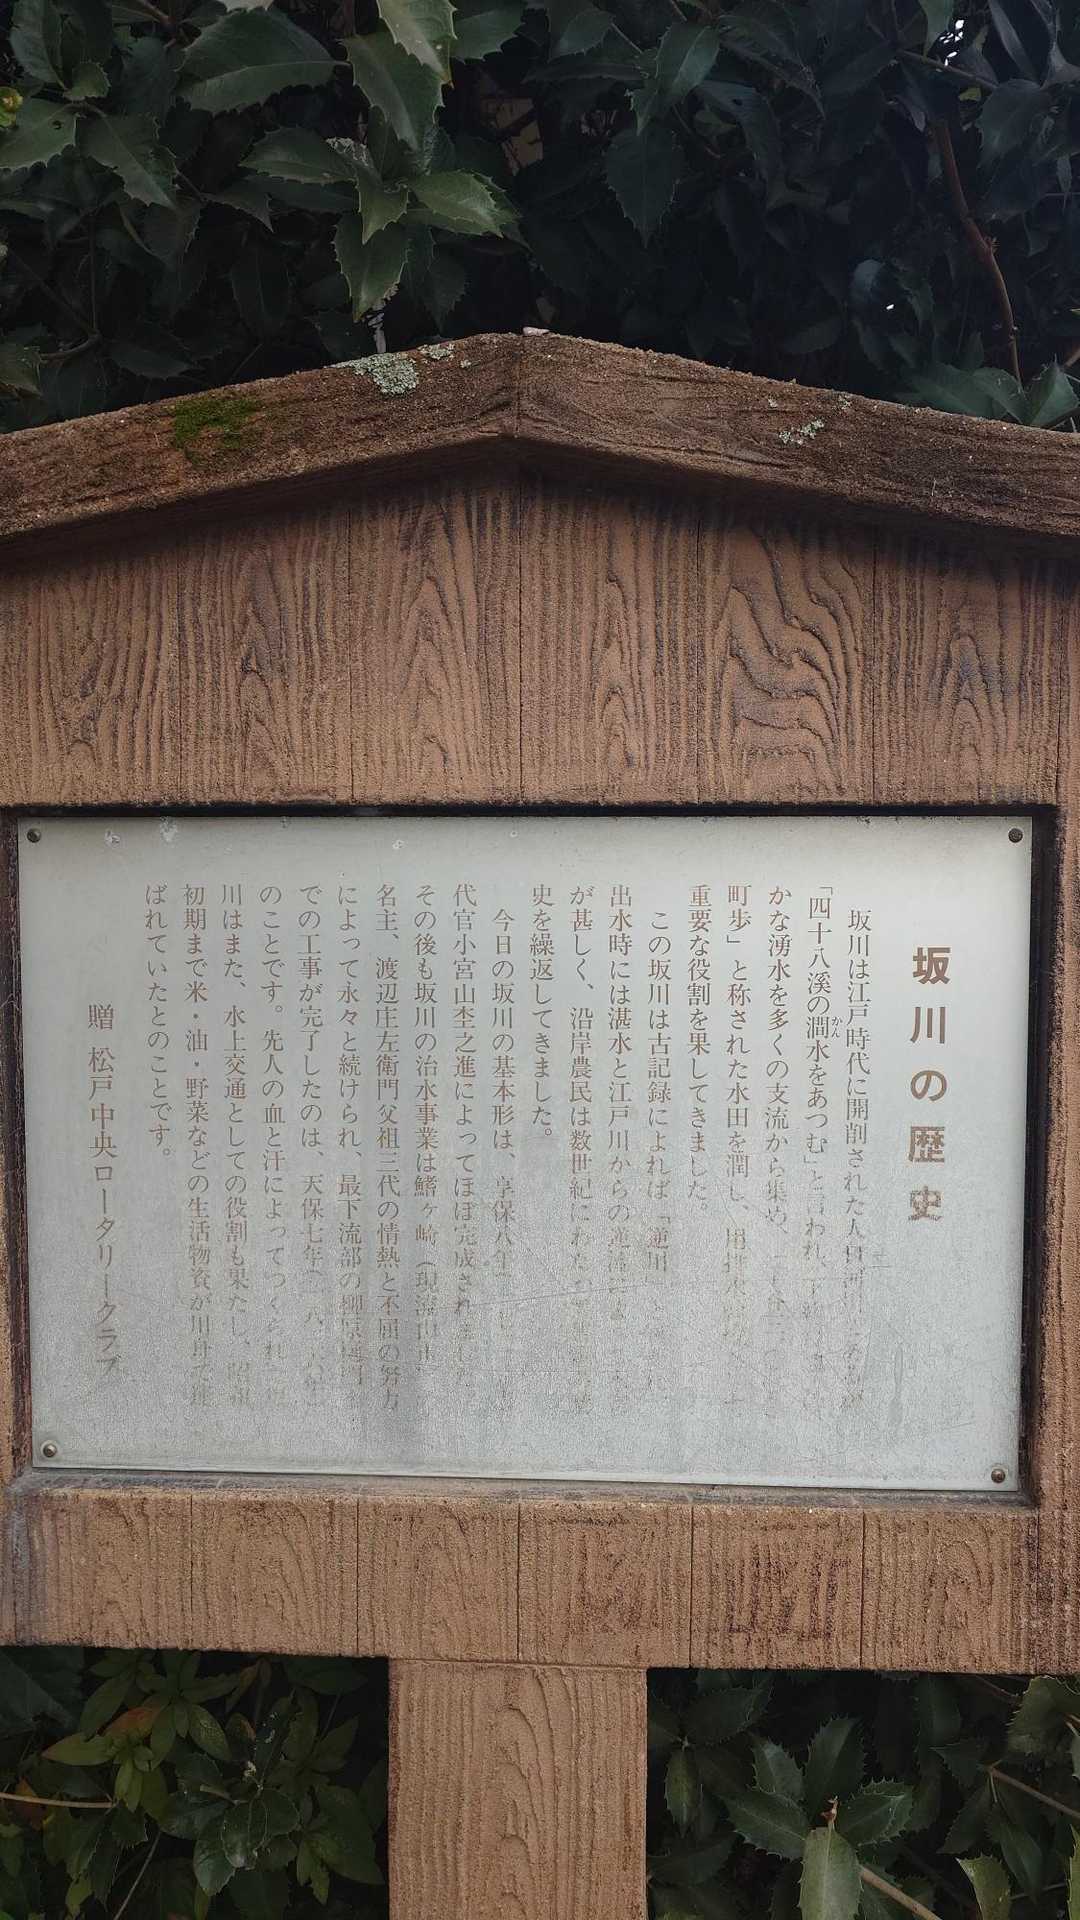 坂川の歴史
坂川は江戸時代に開削された人口河川
「四十八溪の澗水をあつむ」と言われ、
かん
かな湧水を多くの支流から集め、
町歩」と称された水田を潤し、用排水
重要な役割を果してきました。
この坂川は古記録によれば「逆川」と
出水時には湛水と江戸川からの逆流
が甚しく、沿岸農民は数世紀にわた
史を繰返してきました。
今日の坂川の基本形は、享保八年
代官小宮山杢之進によってほぼ完成されました。
その後も坂川の治水事業は鰭ヶ崎（現流山市
名主、渡辺庄左衛門父祖三代の情熱と不屈の努力
によって永々と続けられ、最下流部の柳原
での工事が完了したのは、天保七年（一八
のことです。先人の血と汗によってつくられ
川はまた、水上交通としての役割も果たし、昭和
初期まで米・油・野菜などの生活物資が川舟で運
ばれていたとのことです。
贈 松戸中央ロータリークラブ